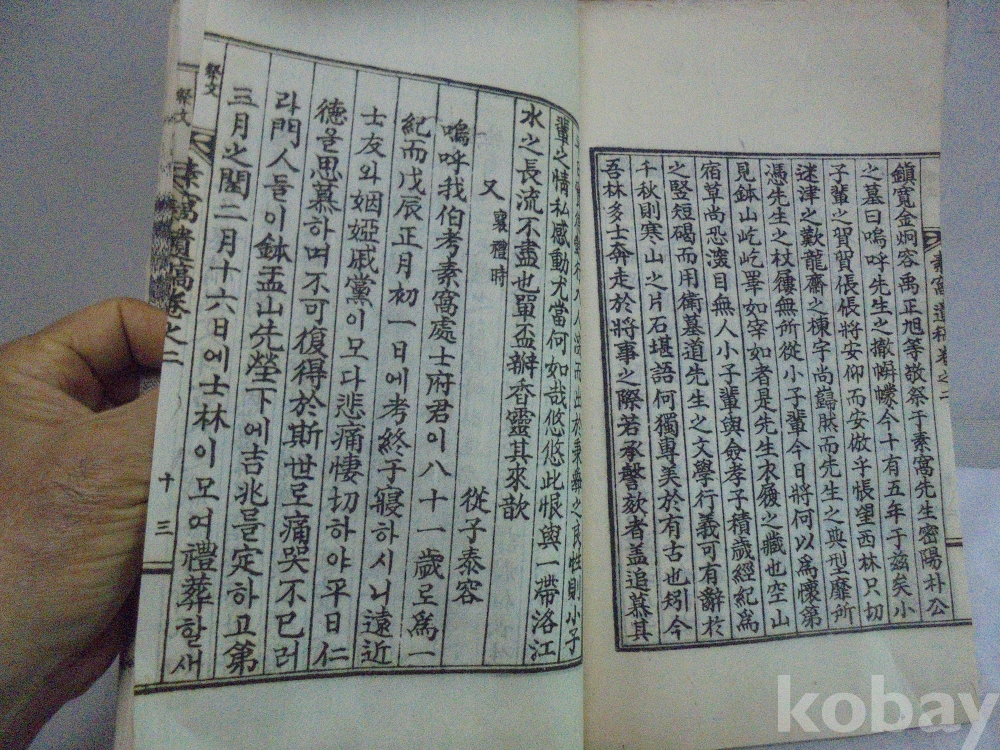 素窩遺稿卷之二
鎭寬金炯容禹正旭等敬祭于素窩先生密陽朴公
之墓曰嗚呼先生之撤帲幪今十有五年于玆矣小
子輩之貿貿倀倀將安仰而安倣乎悵望西林只切
迷津之歎龍齋之棟宇尚歸然而先生之典型靡所
憑先生之杖屨無所從小子輩今日將何以爲懷第
見鉢山屹屹罩如宰如者是先生衣履之藏也空山
宿草尚恐淚目無人小子輩與僉孝子積歲經紀爲
之竪短碣而用衛墓道先生之文學行義可有辭於
千秋則寒山之片石堪語何獨專美於有古也矧今
吾林多士奔走於將事之際若承謦欬者盖追慕其
輩之情私感動尤當何如哉悠悠此恨與一帶洛江
水之長流不盡也單盃瓣香靈其來歆
又 襄禮時
從子泰容
嗚呼我伯考素窩處士府君이八十一歲로爲一
紀而戊辰正月初一日에考終于寢하시니遠近
士友와姻婭戚黨이모다悲痛悽切하야平日仁
德을思慕하며不可復得於斯世로痛哭不已러
라門人들이鉢盂山先塋下에吉兆를定하고第
三月之閏二月十六日에士林이모여禮葬할새
祭文
素窩遺稿卷之二
十三
祭文
kobay